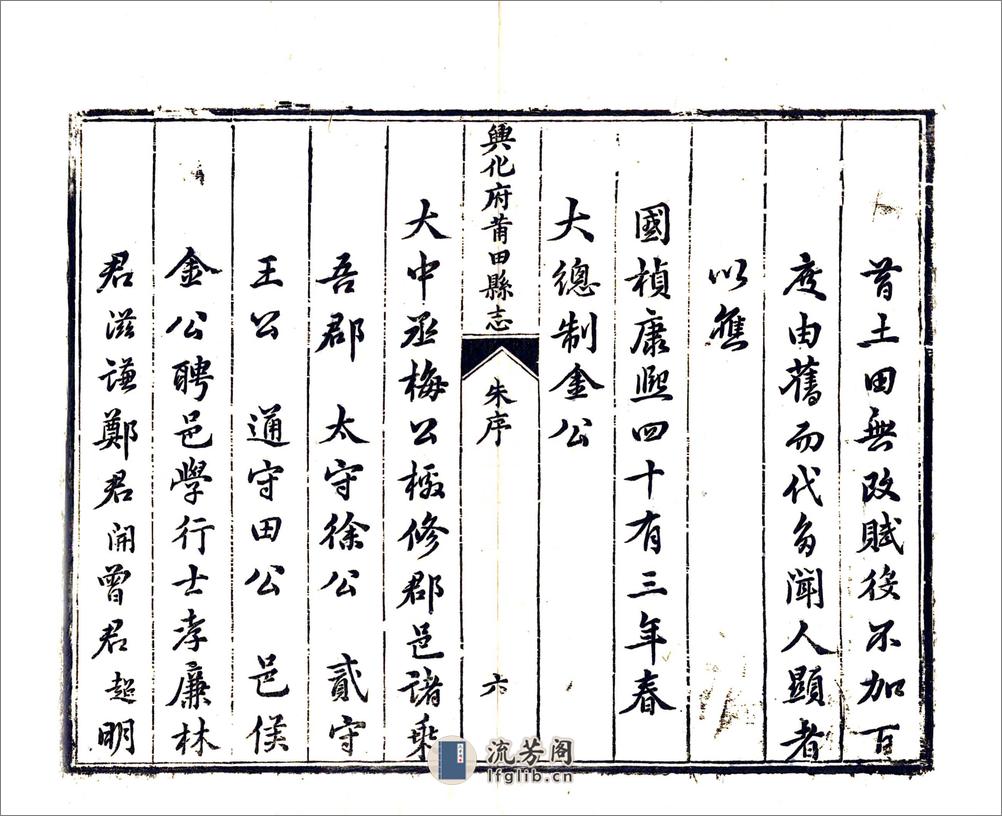 昔土田無改賦役不加百
度由舊而代多聞人顯者
以應
國楨康熙四十有三年春
大總制金公
興化府莆田縣志 朱序 六
大中丞梅公檄修郡邑諸乘
吾郡 太守徐公 貳守
王公 通守田公 邑侯
金公聘邑學行士孝廉林
君滋謙鄭君開曾君超明
流芳阁
lfglib.cn